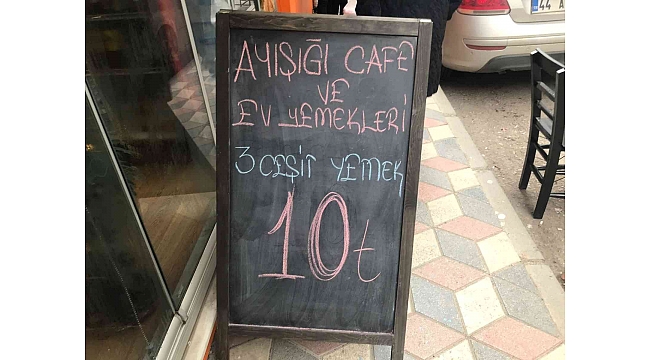 AYIŞIĞI CAFE
VE
EV YEMEKLERİ
3 CEŞİT YEMEK
10.t
44 A